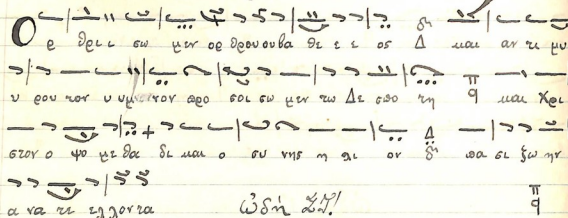 Ο ρ θρι ι σω μεν ορ θρουουβα θε ε ε ος Δ και αν τι μυ
υ ρου τον υ υμνονον προ σοι σω μεν τω Δε σπο τη π̈ q και Χρι
στον ο ψο με θα δι και ο συ νης η λι ον Δ̈ πα σι ζω ην
α να τε ελλοντα ὠδὴ ΣΤ! π̈ q